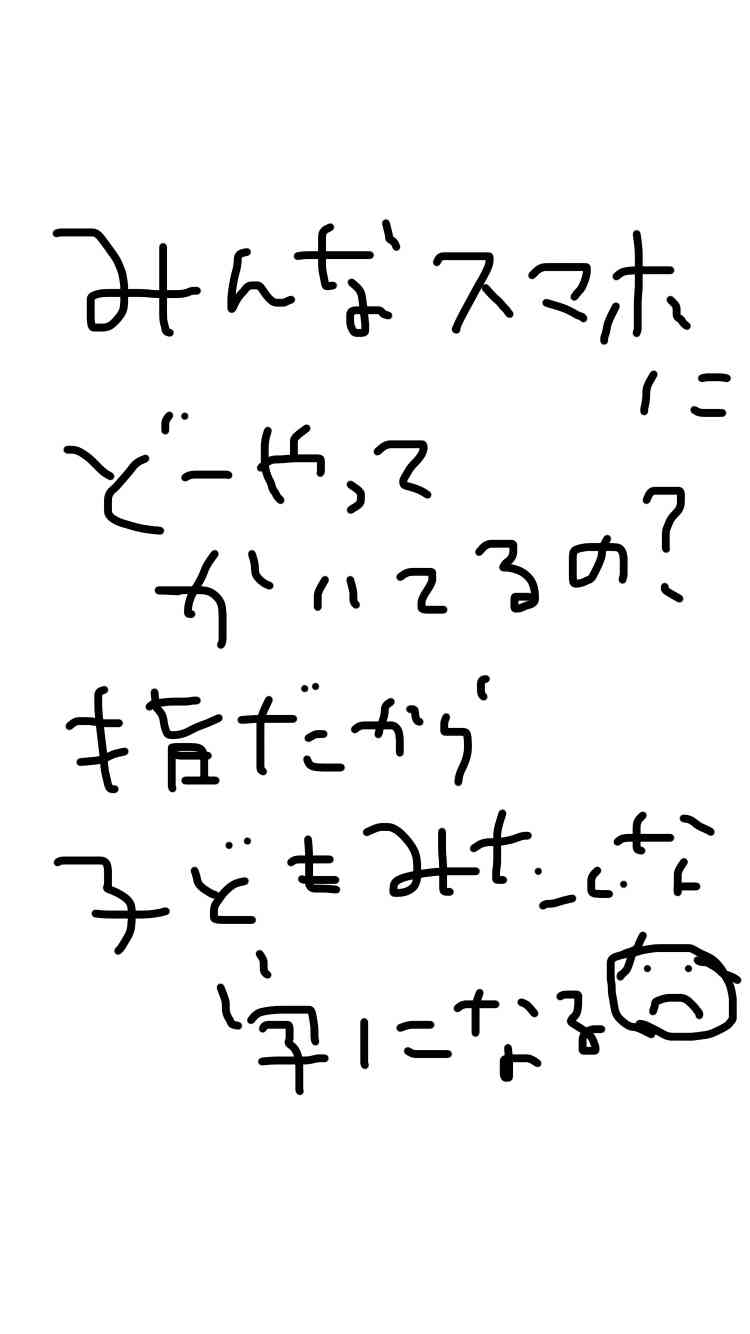 みんなスマホに
どーやって
かいてるの?
指だから
子どもみたいな
字になる